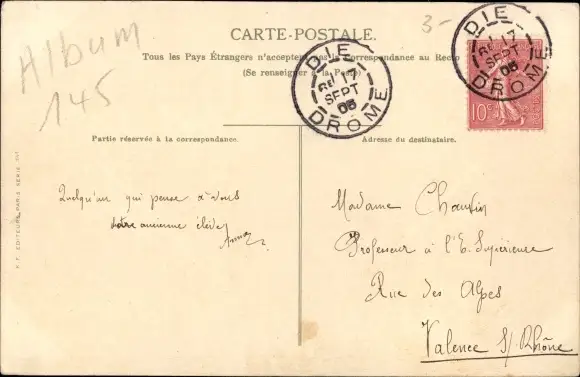 Album
145
3-
CARTE-POSTALE.
Tous les Pays Étrangers n'acceptent pas la Correspondance au Recto
(Se renseigner à la Poste)
DIE
17
SEPT
05
DROME
DIE
17
SEPT
05
DROME
10c
Partie réservée à la correspondance.
Adresse du destinataire.
Quelqu'un qui pense à vous
votre ancienne élève
Anna
Madame
Professeur à l'E. Supérieure
Rue des Alpes
Valence s/ Rhône
F. F. EDITEURS PARIS SERIE